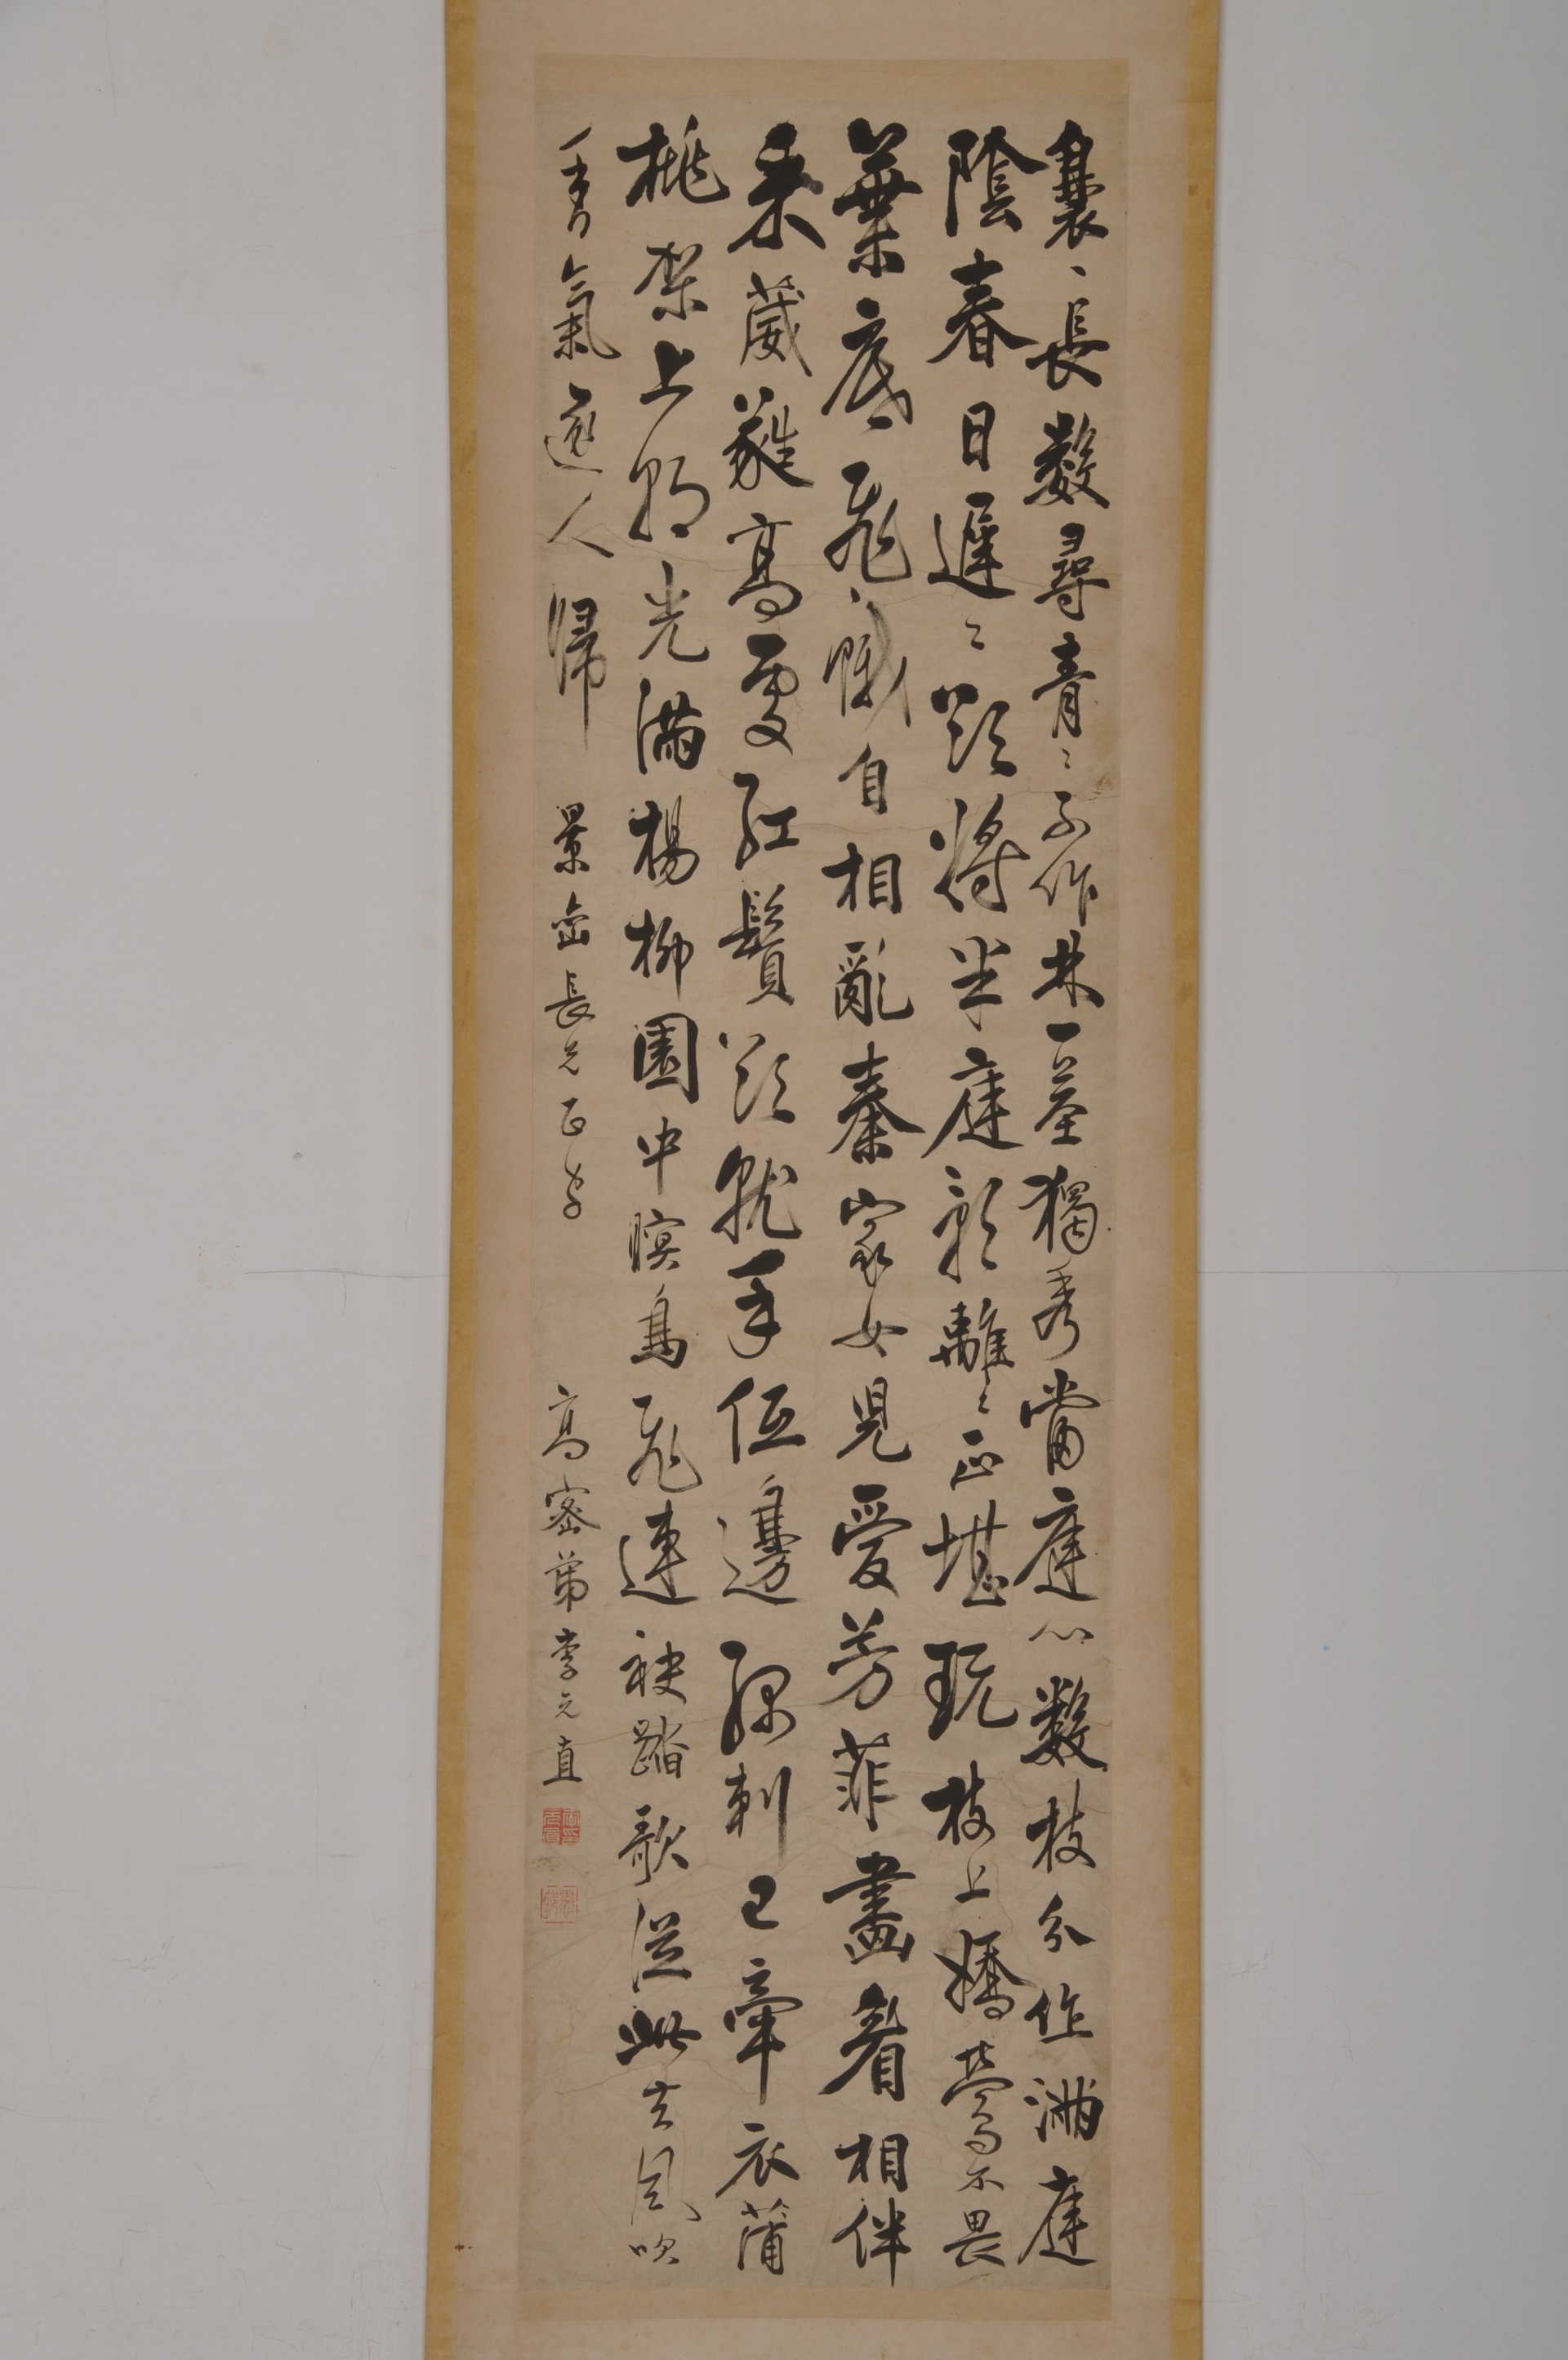 裊丶長數尋青〻不作林一莖獨秀當庭心數枝分作滿庭
陰春日遲〻欲將半庭影離〻正堪玩枝上嬌鶯不畏
葉底飛丶蛾自相亂秦家女兒愛芳菲畫眉相伴
采葳蕤高處紅鬚欲就手低邊綠刺已牽衣蒲
桃架上朝光滿楊柳園中暝鳥飛連袂踏歌從此去風吹
香氣逐人歸
景 長兄正字
高密弟李元直